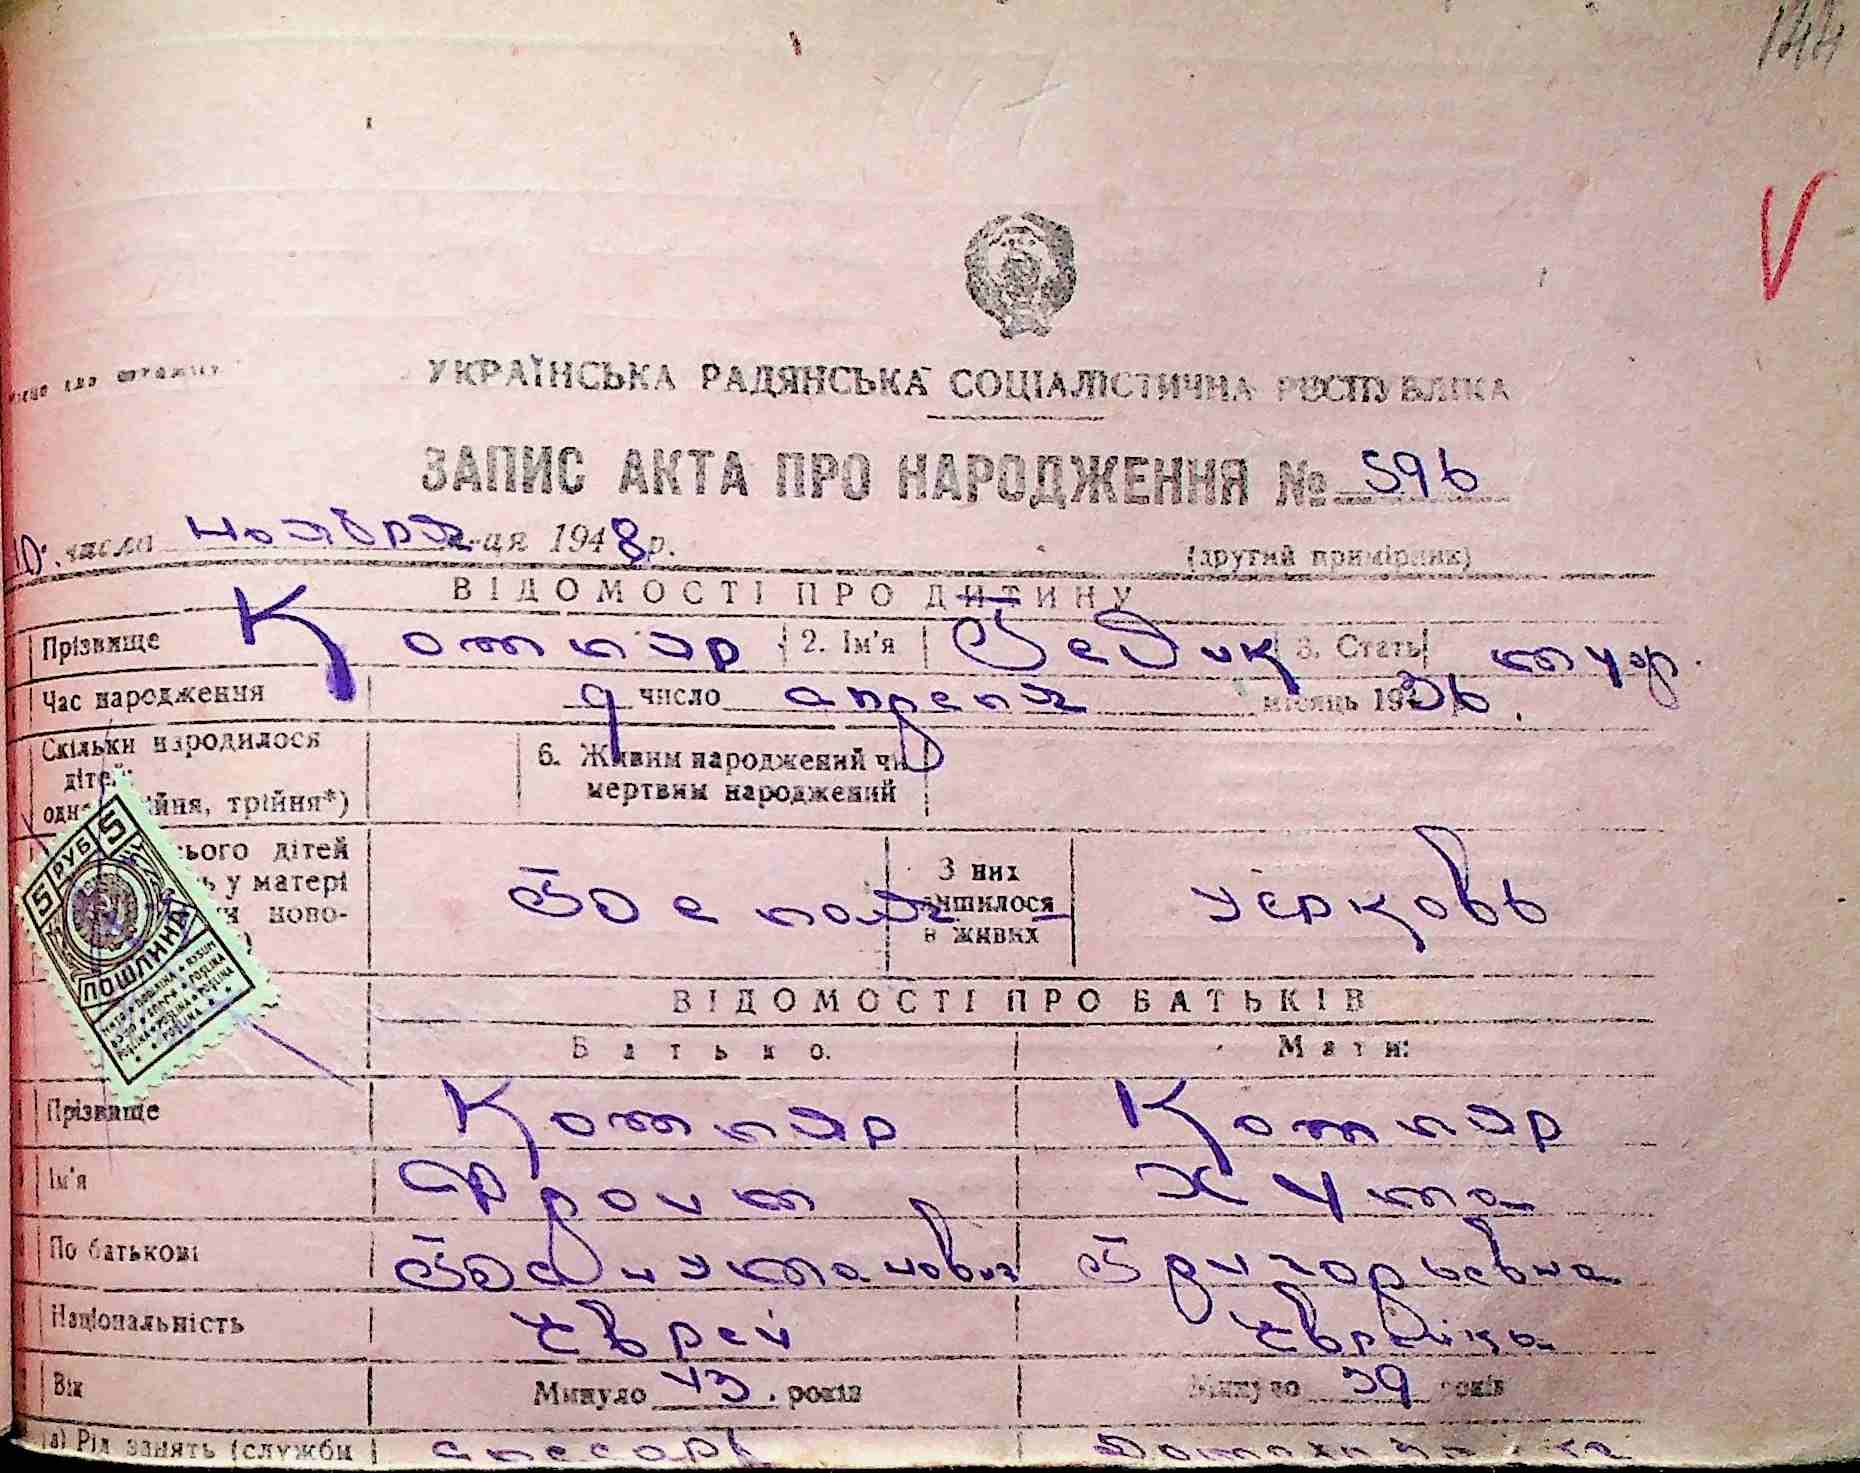 144
УКРАЇНСЬКА РАДЯНСЬКА СОЦІАЛІСТИЧНА РЕСПУБЛІКА
ЗАПИС АКТА ПРО НАРОДЖЕННЯ № 596
10. числа ноября м-ця 1948 р.
(другий примірник)
ВІДОМОСТІ ПРО ДИТИНУ
Прізвище Котляр 2. Ім'я Бедик 3. Стать муж.
Час народження 9 число апреля місяць 1936.
Скільки народилося
дітей: 6. Живим народжений чи
одне трійня*) мертвим народжений
дітей З них
у матері лишилося
ново- в живих
5 РУБ 5
ПОШЛИНА
ВІДОМОСТІ ПРО БАТЬКІВ
Батько: Мати:
Прізвище Котляр Котляр
Ім'я Фроим
По батькові Григорьевна
Національність Еврей Еврейка
Вік Минуло 43. років Минуло 39 років
а) Рід занять (служби слесарь Домохозяйка